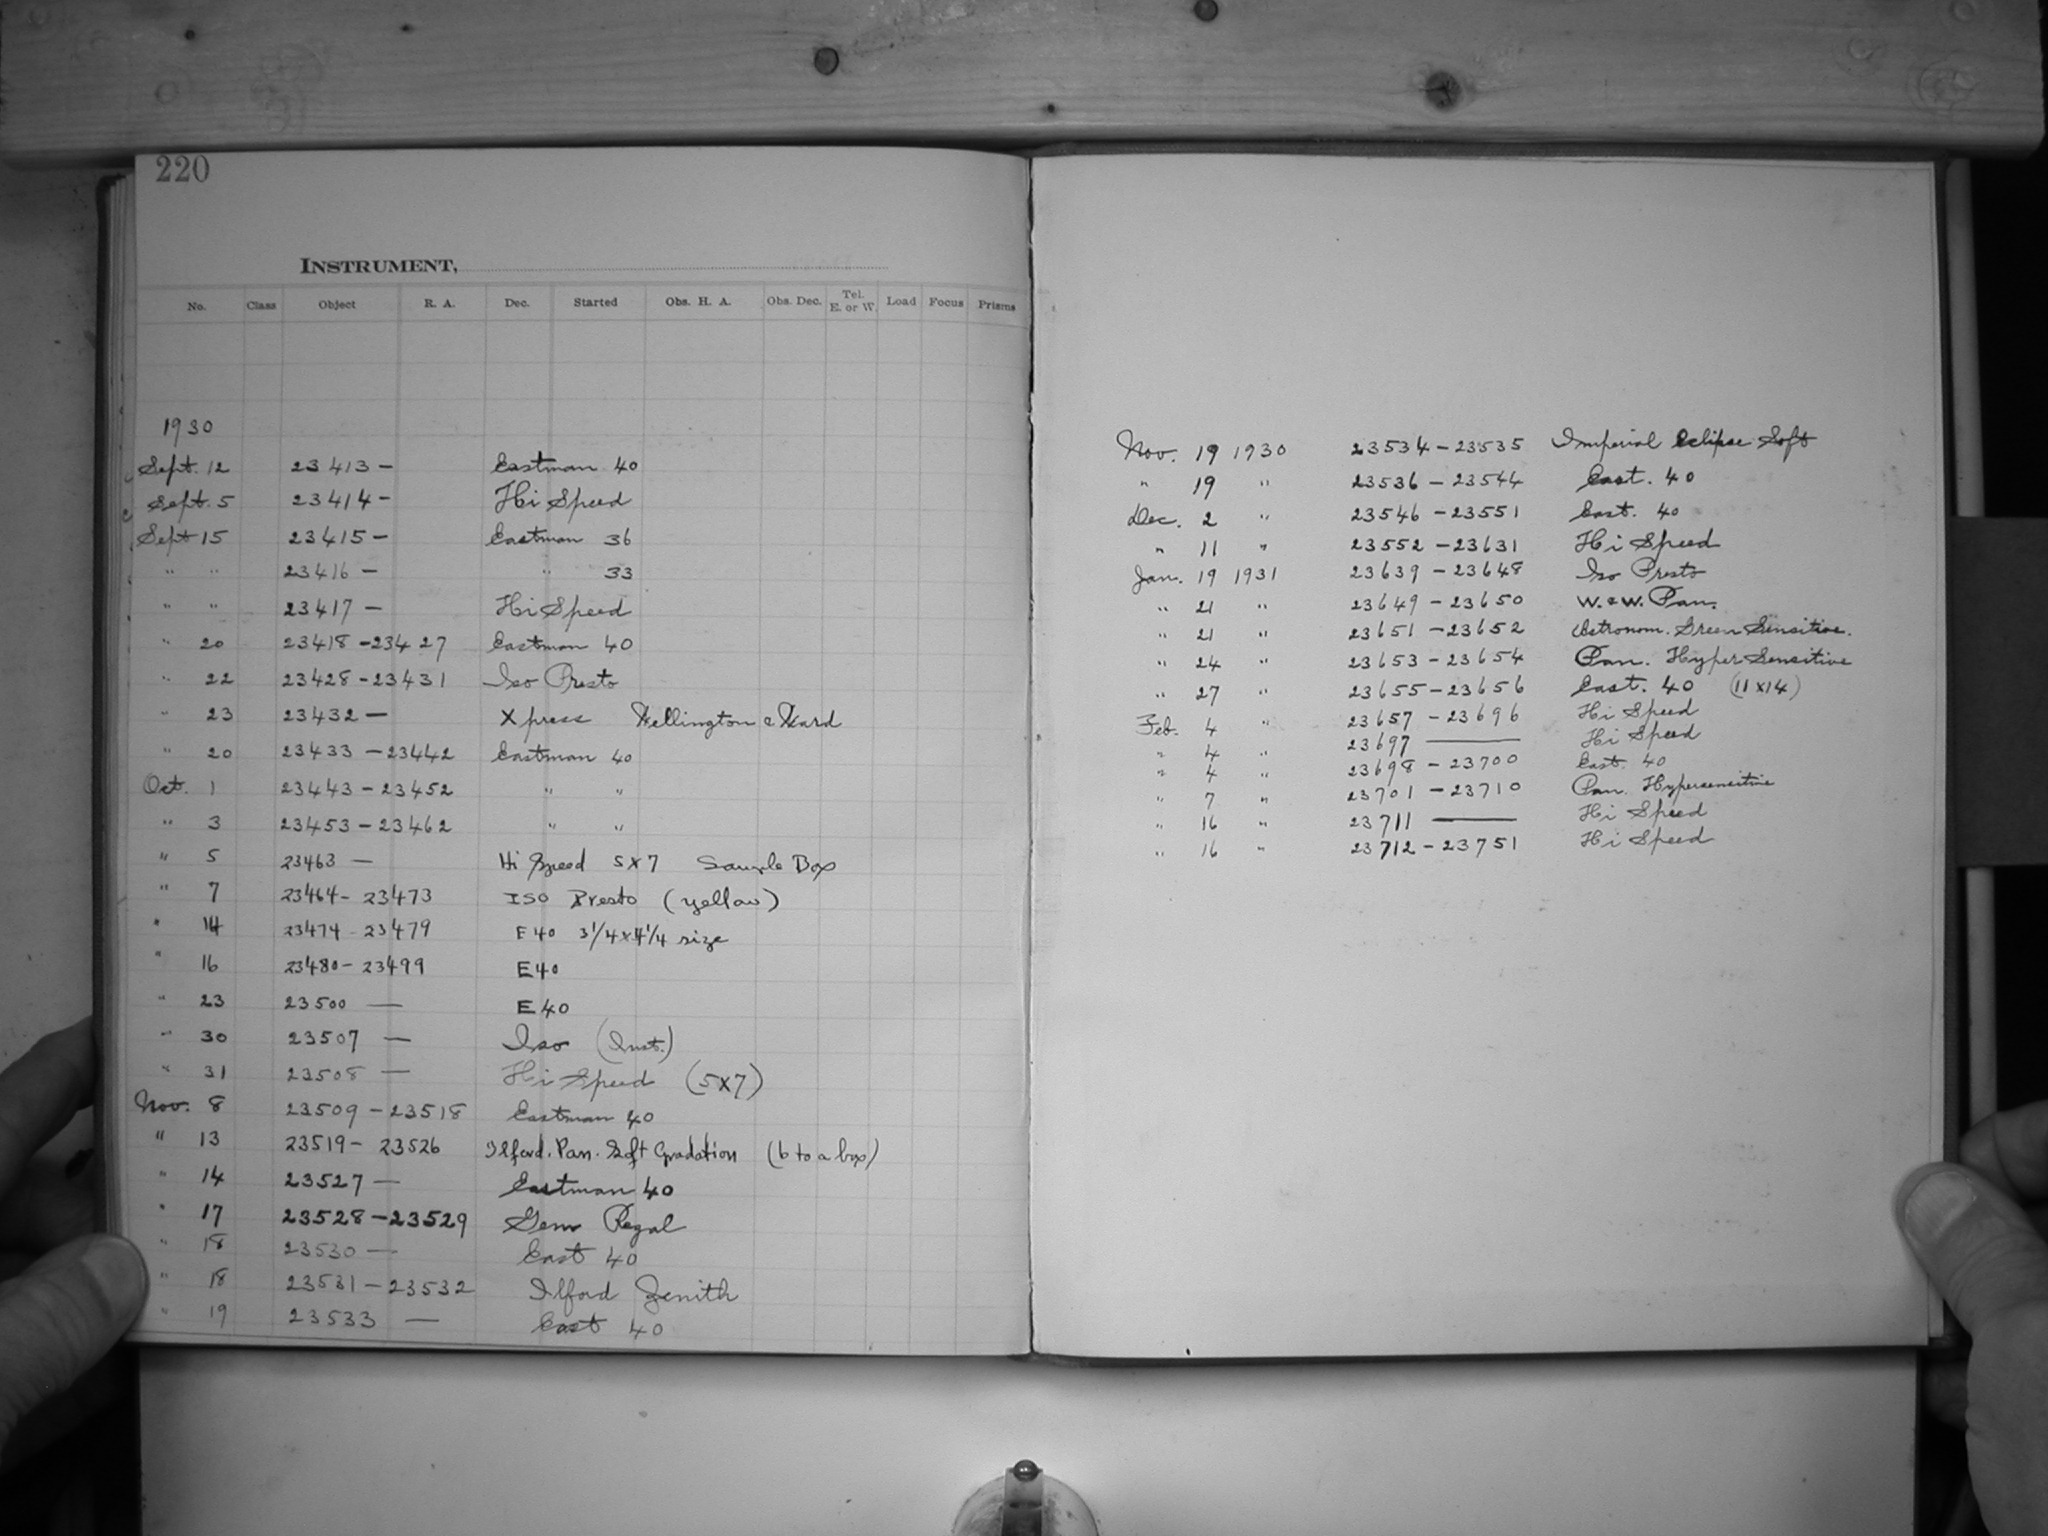 220
INSTRUMENT,
No. Class Object R. A. Dec. Started Obs. H. A. Obs. Dec. Tel. E. or W. Load Focus Prisms
1930
Sept. 12 23413 — Eastman 40
Sept. 5 23414 — Hi Speed
Sept 15 23415 — Eastman 36
" " 23416 — " 33
" " 23417 — Hi Speed
" 20 23418 - 23427 Eastman 40
" 22 23428 - 23431 Iso Presto
" 23 23432 — Xpress Wellington & Ward
" 20 23433 - 23442 Eastman 40
Oct. 1 23443 - 23452 " "
" 3 23453 - 23462 " "
" 5 23463 — Hi Speed 5x7 Sample Box
" 7 23464 - 23473 ISO Presto (yellow)
" 14 23474 - 23479 E40 3 1/4 x 4 1/4 size
" 16 23480 - 23499 E40
" 23 23500 — E40
" 30 23507 — Iso (Inst.)
" 31 23508 — Hi Speed (5x7)
Nov. 8 23509 - 23518 Eastman 40
" 13 23519 - 23526 Ilford. Pan. Soft Gradation (6 to a box)
" 14 23527 — Eastman 40
" 17 23528 - 23529 Gem Regal
" 18 23530 — East 40
" 18 23531 - 23532 Ilford Zenith
" 19 23533 — East 40
Nov. 19 1930 23534 - 23535 Imperial Eclipse Soft
" 19 " 23536 - 23544 East. 40
Dec. 2 " 23546 - 23551 East. 40
" 11 " 23552 - 23631 Hi Speed
Jan. 19 1931 23639 - 23648 Iso Presto
" 21 " 23649 - 23650 W. & W. Pan.
" 21 " 23651 - 23652 Astronom. Green Sensitive.
" 24 " 23653 - 23654 Pan. Hyper Sensitive
" 27 " 23655 - 23656 East. 40 (11 x 14)
Feb. 4 " 23657 - 23696 Hi Speed
" 4 " 23697 — Hi Speed
" 4 " 23698 - 23700 East. 40
" 7 " 23701 - 23710 Pan. Hypersensitive
" 16 " 23711 — Hi Speed
" 16 " 23712 - 23751 Hi Speed